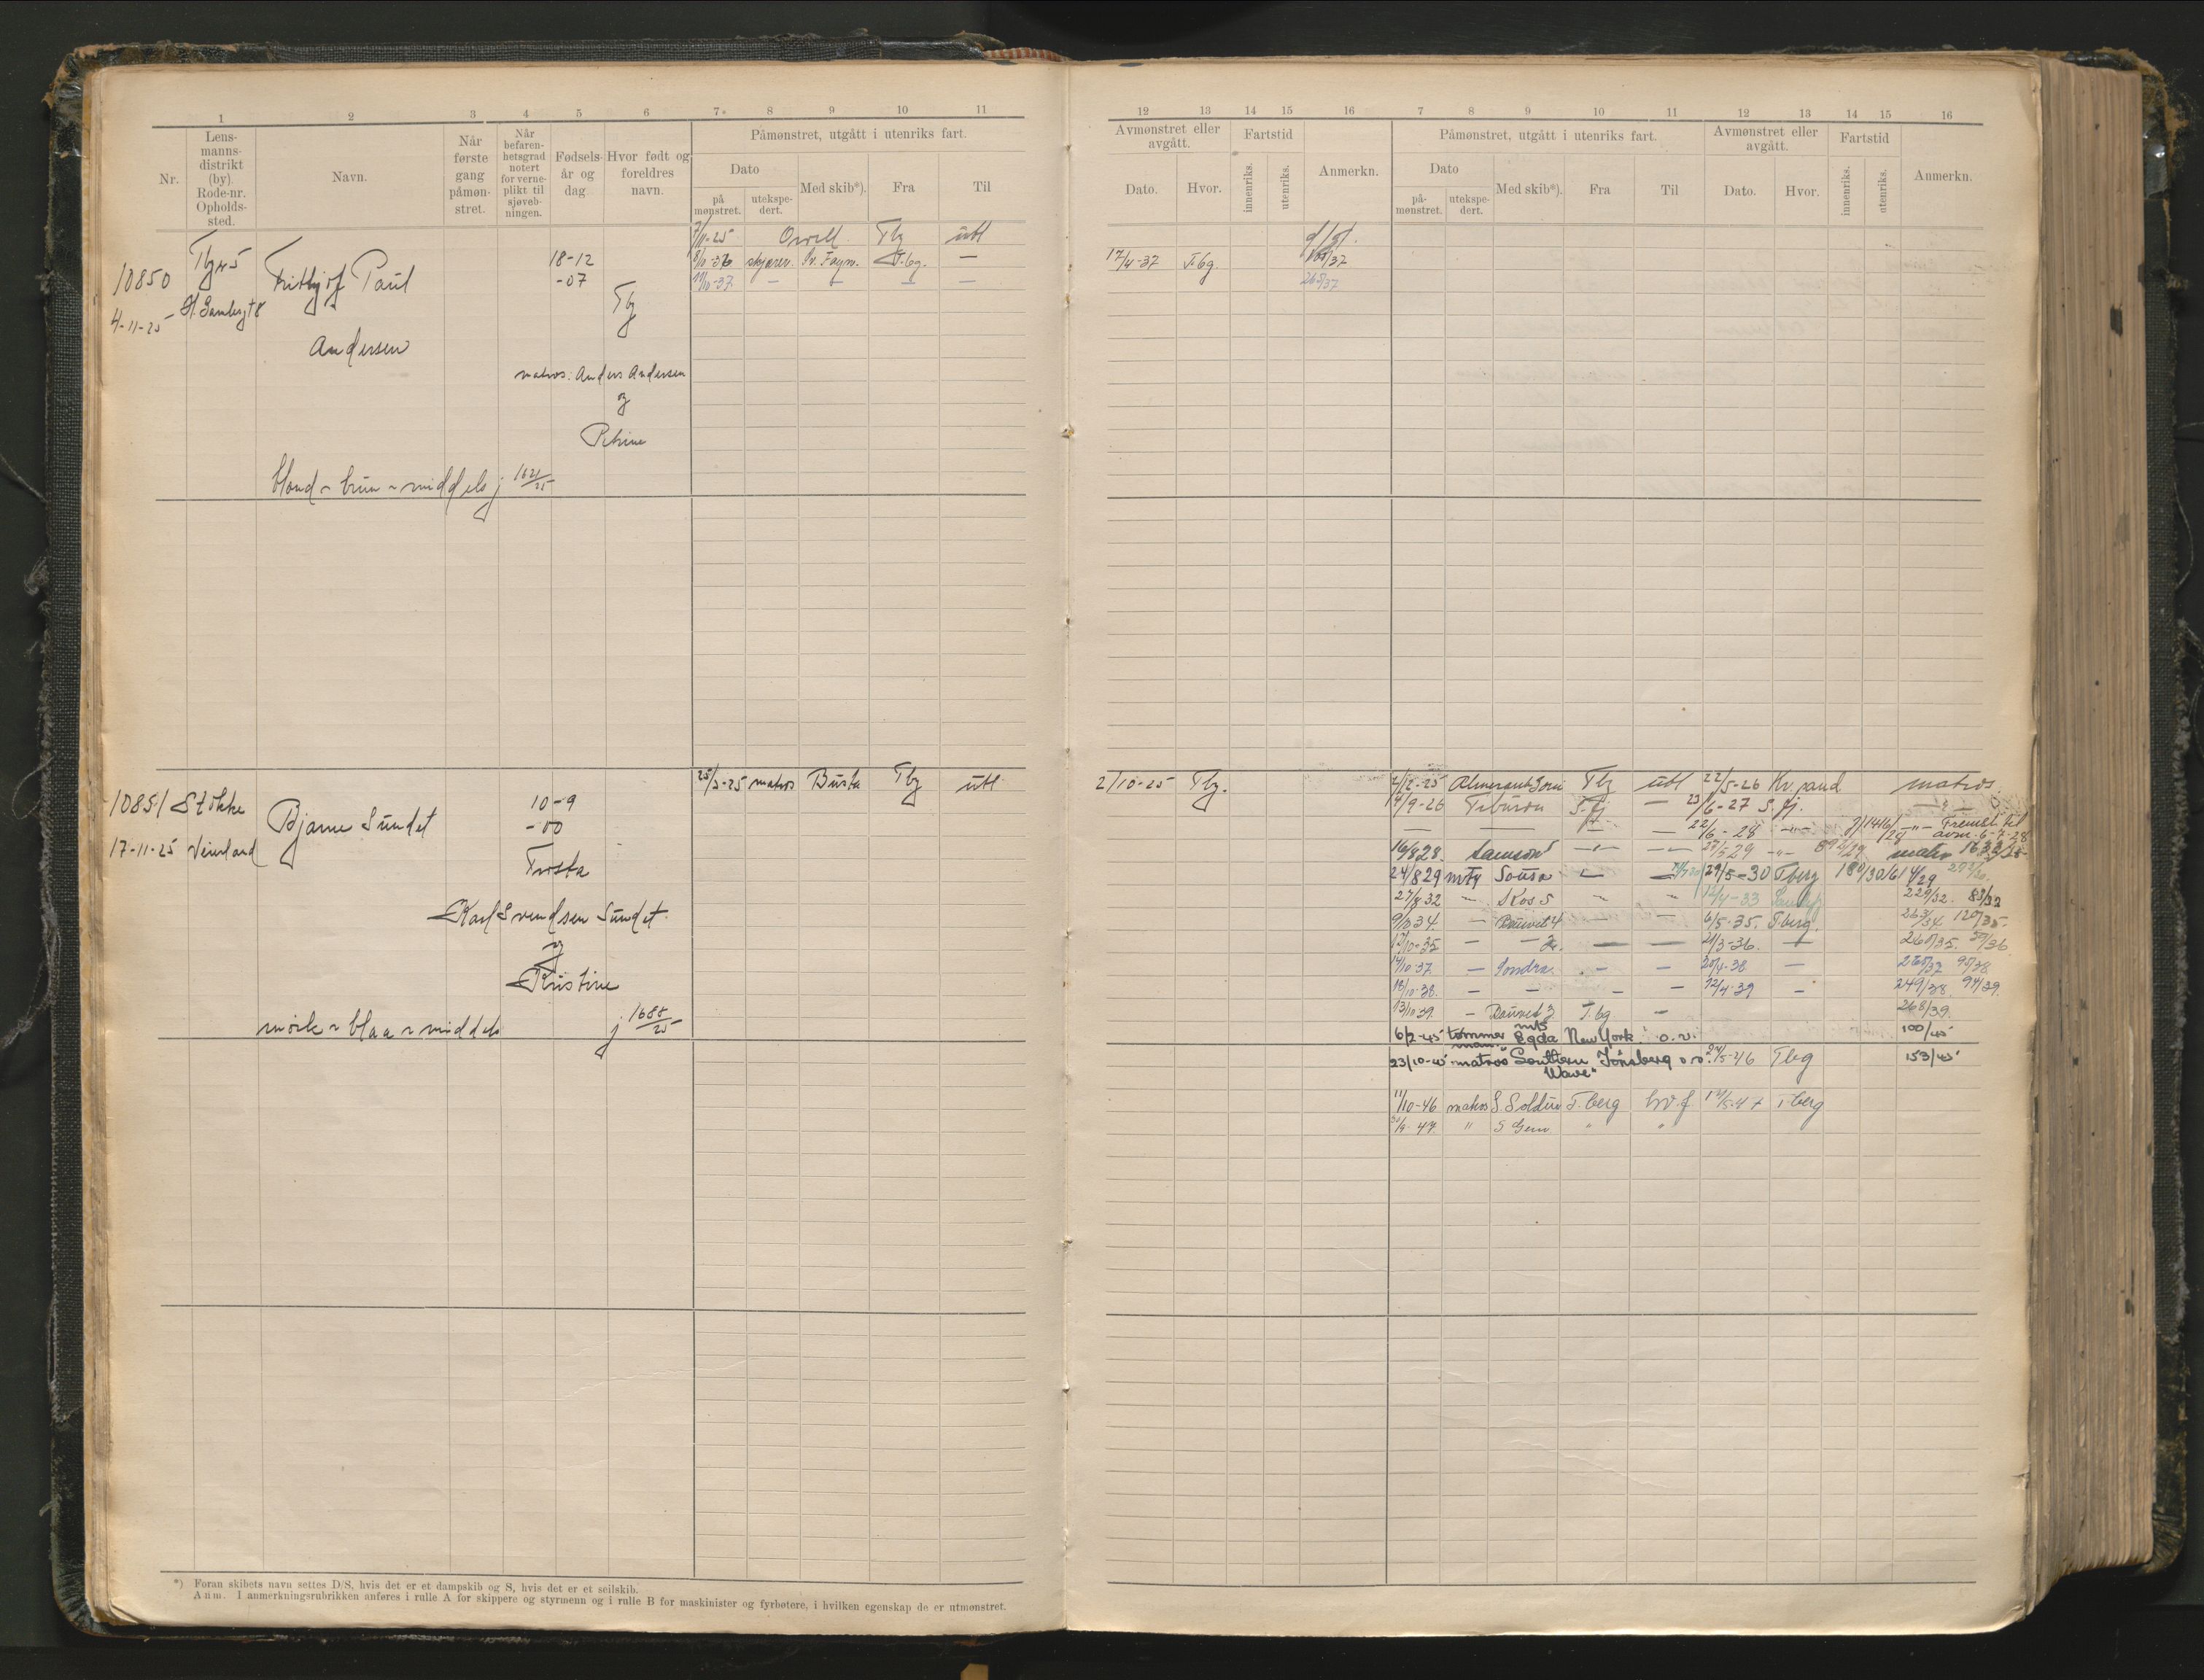 1 2 3 4 5 6 7* 8 9 10 11
Nr.
Lens-
manns-
distrikt
(by).
Rode-nr.
Opholds-
sted.
Navn.
Når
første
gang
påmøn-
stret.
Når
befaren-
hetsgrad
notert
for verne-
plikt til
sjøveb-
ningen.
Fødsels-
år og
dag.
Hvor født og
foreldres
navn.
Påmønstret, utgått i utenriks fart.
Dato
på
mønstret.
utekspe-
dert.
Med skib*).
Fra
Til
7/11-25 Orwell Tbg utl
8/10-36 skjærer. Sv. Foyn. T.bg. —
11/10-37 — — — —
10850
4-11-25
Tbg
Fritbjof Paul
Andersen
18-12
-07
Tbg
matros: Anders Andersen
og
Petrine
blond ~ brun ~ middels j
25/3-25 matros Busta Tbg utl
10851 Stokke
17-11-25 Veierland
Bjarne Sundet
10-9
-00
Karl Svendsen Sundet
og
Kristine
mørk ~ blaa ~ middels j 1688/25
*) Foran skibets navn settes D/S, hvis det er et dampskib og S, hvis det er et seilskib.
Anm. I anmerkningsrubrikken anføres i rulle A for skippere og styrmenn og i rulle B for maskinister og fyrbøtere, i hvilken egenskap de er utmønstret.
12 13 14 15 16 7 8 9 10 11 12 13 14 15 16
Avmønstret eller
avgått.
Dato.
Hvor.
Fartstid
innenriks.
utenriks.
Anmerkn.
Påmønstret, utgått i utenriks fart.
Dato
på-
mønstret.
utekspe-
dert.
Med skib*).
Fra
Til
Avmønstret eller
avgått.
Dato.
Hvor.
Fartstid
innenriks.
utenriks.
Anmerkn.
17/4-37 T.bg.
265/37
2/10-25 Tbg.
Tbg utl 22/5-26 Kr.sand matros.
1/9-26 Tiburon S.fj — 23/6-27 S.fj.
— — — — 22/6-28 —"— Fremst. til
avm. 6-7-28
16/8 28. Samson —"— —"— 27/5 29 —"— matr
24/8 29 mtr Sousa — — 29/5-30 Tberg
27/8 32 — Kos 5 ~ ~ 12/4-33 229/32. 83/33
9/10 34. — Rauvet 4 — — 6/5-35. T.berg. 263/34 120/35
12/10-35 — — — — 21/3-36. — 260/35. 59/36
14/10-37. — Sondra. — — 20/4-38 — 260/37 90/38
18/10-38. — — — — 12/4-39 — 249/38. 94/39.
13/10 39. — Rauvet 3 T.bg — 268/39.
6/2-45 tømmer
man. m/s
Egda New York o.v. 100/45
23/10-45 matros "Southern
Wave" Tönsberg o.v. 24/5-46 Tbg 153/45
11/10-46 matros S. Soldier T.berg hv.f T-berg
30/9-47. " S Gem " "